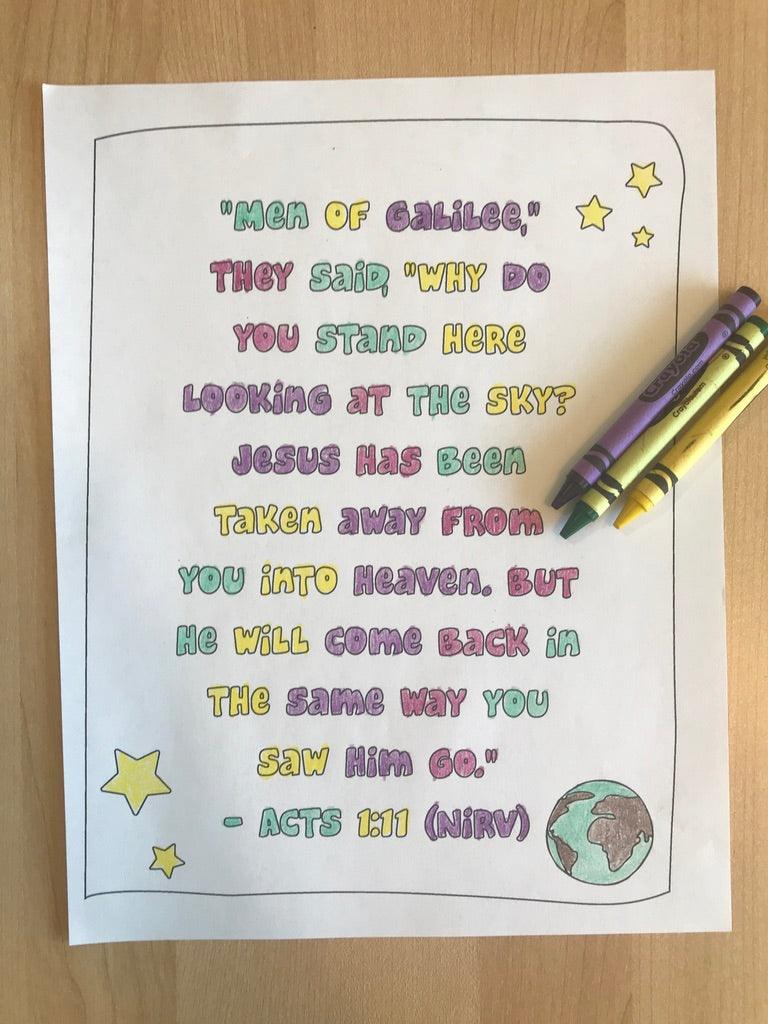 "Men OF Galilee,"
THEY SaiD, "WHY DO
YOU STanD Here
LOOKinG aT THe SKY?
Jesus Has Been
Taken away FROM
YOU inTO Heaven. BUT
He WiLL COMe Back in
THe same way YOU
saw Him GO."
- ACTS 1:11 (NiRV)
Crayola
Crayola.com